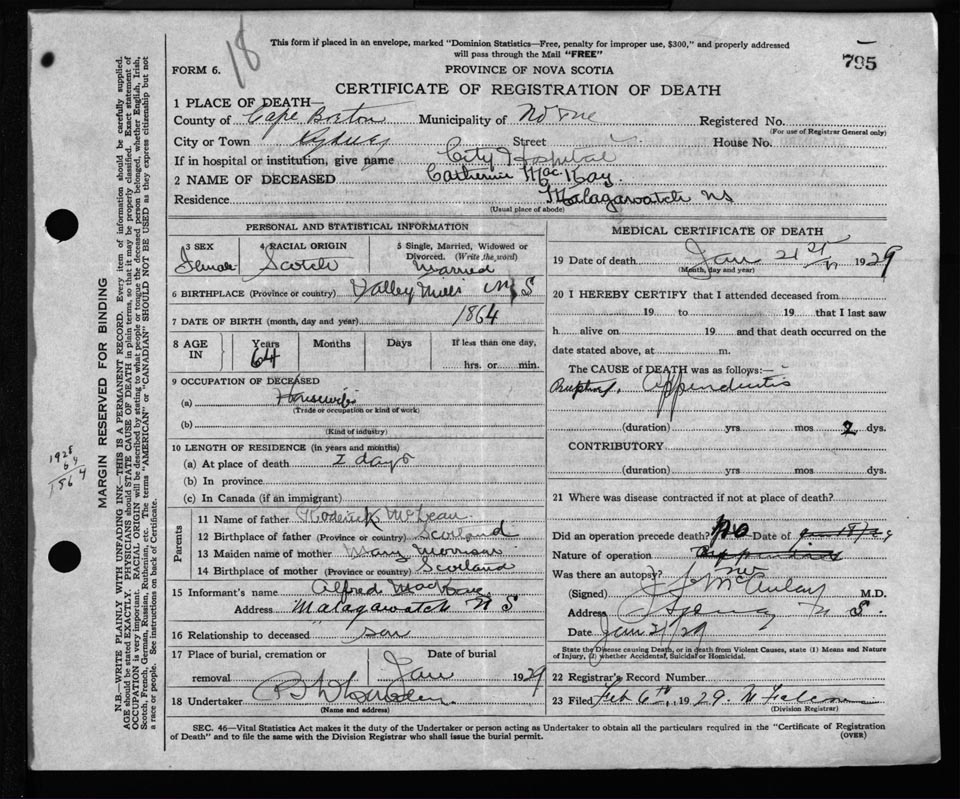 18
This form if placed in an envelope, marked "Dominion Statistics—Free, penalty for improper use, $300," and properly addressed
will pass through the Mail "FREE"
795
FORM 6.
PROVINCE OF NOVA SCOTIA
CERTIFICATE OF REGISTRATION OF DEATH
1 PLACE OF DEATH—
County of Cape Breton Municipality of Registered No.
(For use of Registrar General only)
City or Town Sydney Street House No.
If in hospital or institution, give name City Hospital
2 NAME OF DECEASED Catherine MacKay.
Residence Malagawatch NS
(Usual place of abode)
PERSONAL AND STATISTICAL INFORMATION
3 SEX Female
4 RACIAL ORIGIN Scotch
5 Single, Married, Widowed or Divorced. (Write the word) Married
6 BIRTHPLACE (Province or country) Valley Mills N S
7 DATE OF BIRTH (month, day and year) 1864
8 AGE IN Years 64 Months Days If less than one day, hrs. or min.
9 OCCUPATION OF DECEASED
(a) Housewife
(Trade or occupation or kind of work)
(b)
(Kind of industry)
10 LENGTH OF RESIDENCE (in years and months)
(a) At place of death 2 days
(b) In province
(c) In Canada (if an immigrant)
Parents
11 Name of father Roderick McLean
12 Birthplace of father (Province or country) Scotland
13 Maiden name of mother Mary Morrison
14 Birthplace of mother (Province or country) Scotland
15 Informant's name Alfred MacKay
Address Malagawatch N S
16 Relationship to deceased son
17 Place of burial, cremation or removal Date of burial Jan 1929
18 Undertaker
(Name and address)
MEDICAL CERTIFICATE OF DEATH
19 Date of death Jan 21 1929
(Month, day and year)
20 I HEREBY CERTIFY that I attended deceased from
19 to 19 that I last saw
h alive on 19 and that death occurred on
date stated above, at m.
The CAUSE of DEATH was as follows:—
Ruptured Appendicitis
(duration) yrs mos 2 dys.
CONTRIBUTORY
(duration) yrs mos dys.
21 Where was disease contracted if not at place of death?
Did an operation precede death? No Date of
Nature of operation
Was there an autopsy? no
(Signed) McAulay M.D.
Address Sydney N S.
Date Jan 21/29
State the Disease causing Death, or in death from Violent Causes, state (1) Means and Nature
of Injury, (2) whether Accidental, Suicidal or Homicidal.
22 Registrar's Record Number
23 Filed Feb 6th, 1929
(Division Registrar)
SEC. 46—Vital Statistics Act makes it the duty of the Undertaker or person acting as Undertaker to obtain all the particulars required in the "Certificate of Registration
of Death" and to file the same with the Division Registrar who shall issue the burial permit.
(OVER)
MARGIN RESERVED FOR BINDING
N.B.—WRITE PLAINLY WITH UNFADING INK—THIS IS A PERMANENT RECORD. Every item of information should be carefully supplied.
AGE should be stated EXACTLY. PHYSICIANS should STATE CAUSE OF DEATH in plain terms, so that it may be properly classified. Exact statement of
OCCUPATION is very important. RACIAL ORIGIN will be described by stating to what people or tongue the deceased person belonged, whether English, Irish,
Scotch, French, German, Russian, Ruthenian, etc. The terms "AMERICAN" or "CANADIAN" SHOULD NOT BE USED as they express citizenship but not
a race or people. See instructions on back of Certificate.
1928
64
1864